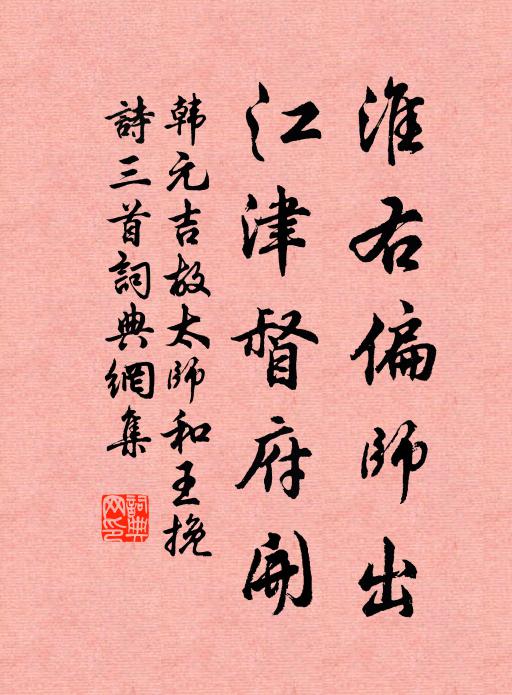 淮右偏師出
江津督府開
韩元吉故太師和王挽
詩三首詞典網集
詞典网印